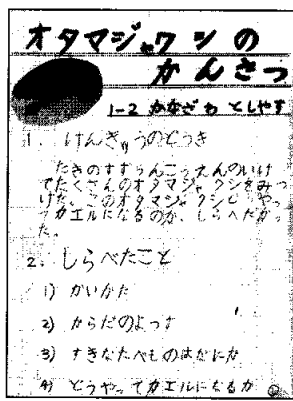 オタマジャクシの
かんさつ
1-2 かなざわ としやす
1. けんきゅうのどうき
たきのすすうんこうえんのいけ
でたくさんのオタマジャクシをみつ
けた。このオタマジャクシ やっ
てカエルになるのか、しらべたかっ
た。
2. しらべたこと
1) かいかた
2) からだのようす
3) すきなたべものはなにか
4) どうやってカエルになるか